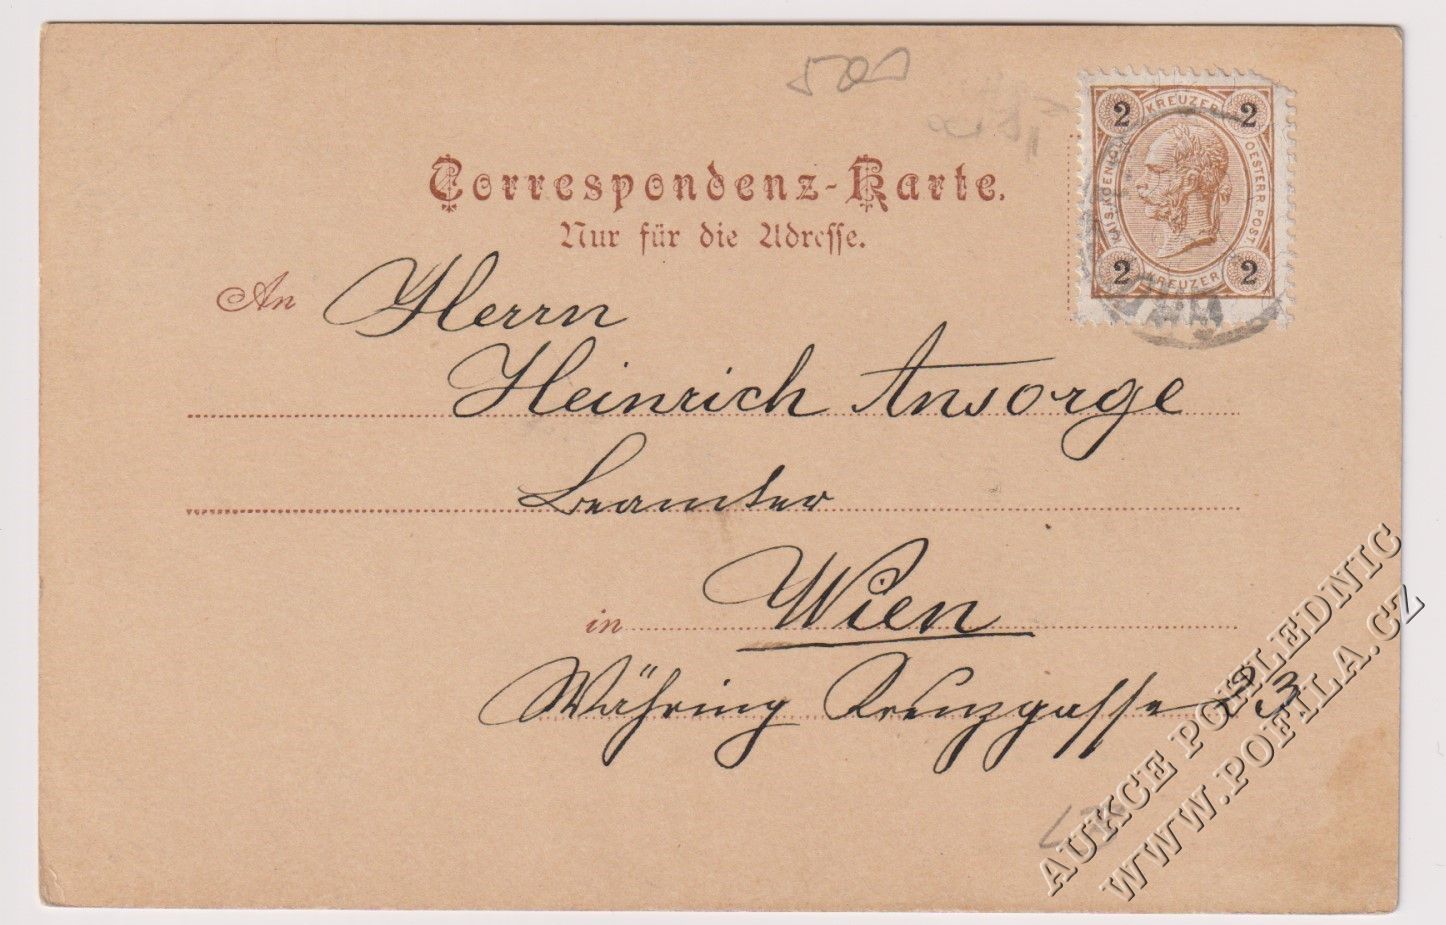 Correspondenz-Karte.
Nur für die Adresse.
2 KREUZER 2
KAIS. KOENIGL. OESTERR. POST
2 KREUZER 2
An Herrn
Heinrich Ansorge
Beamter
in Wien
Währing Kreuzgasse 23
AUKCE POHLEDNIC
WWW.POFILA.CZ